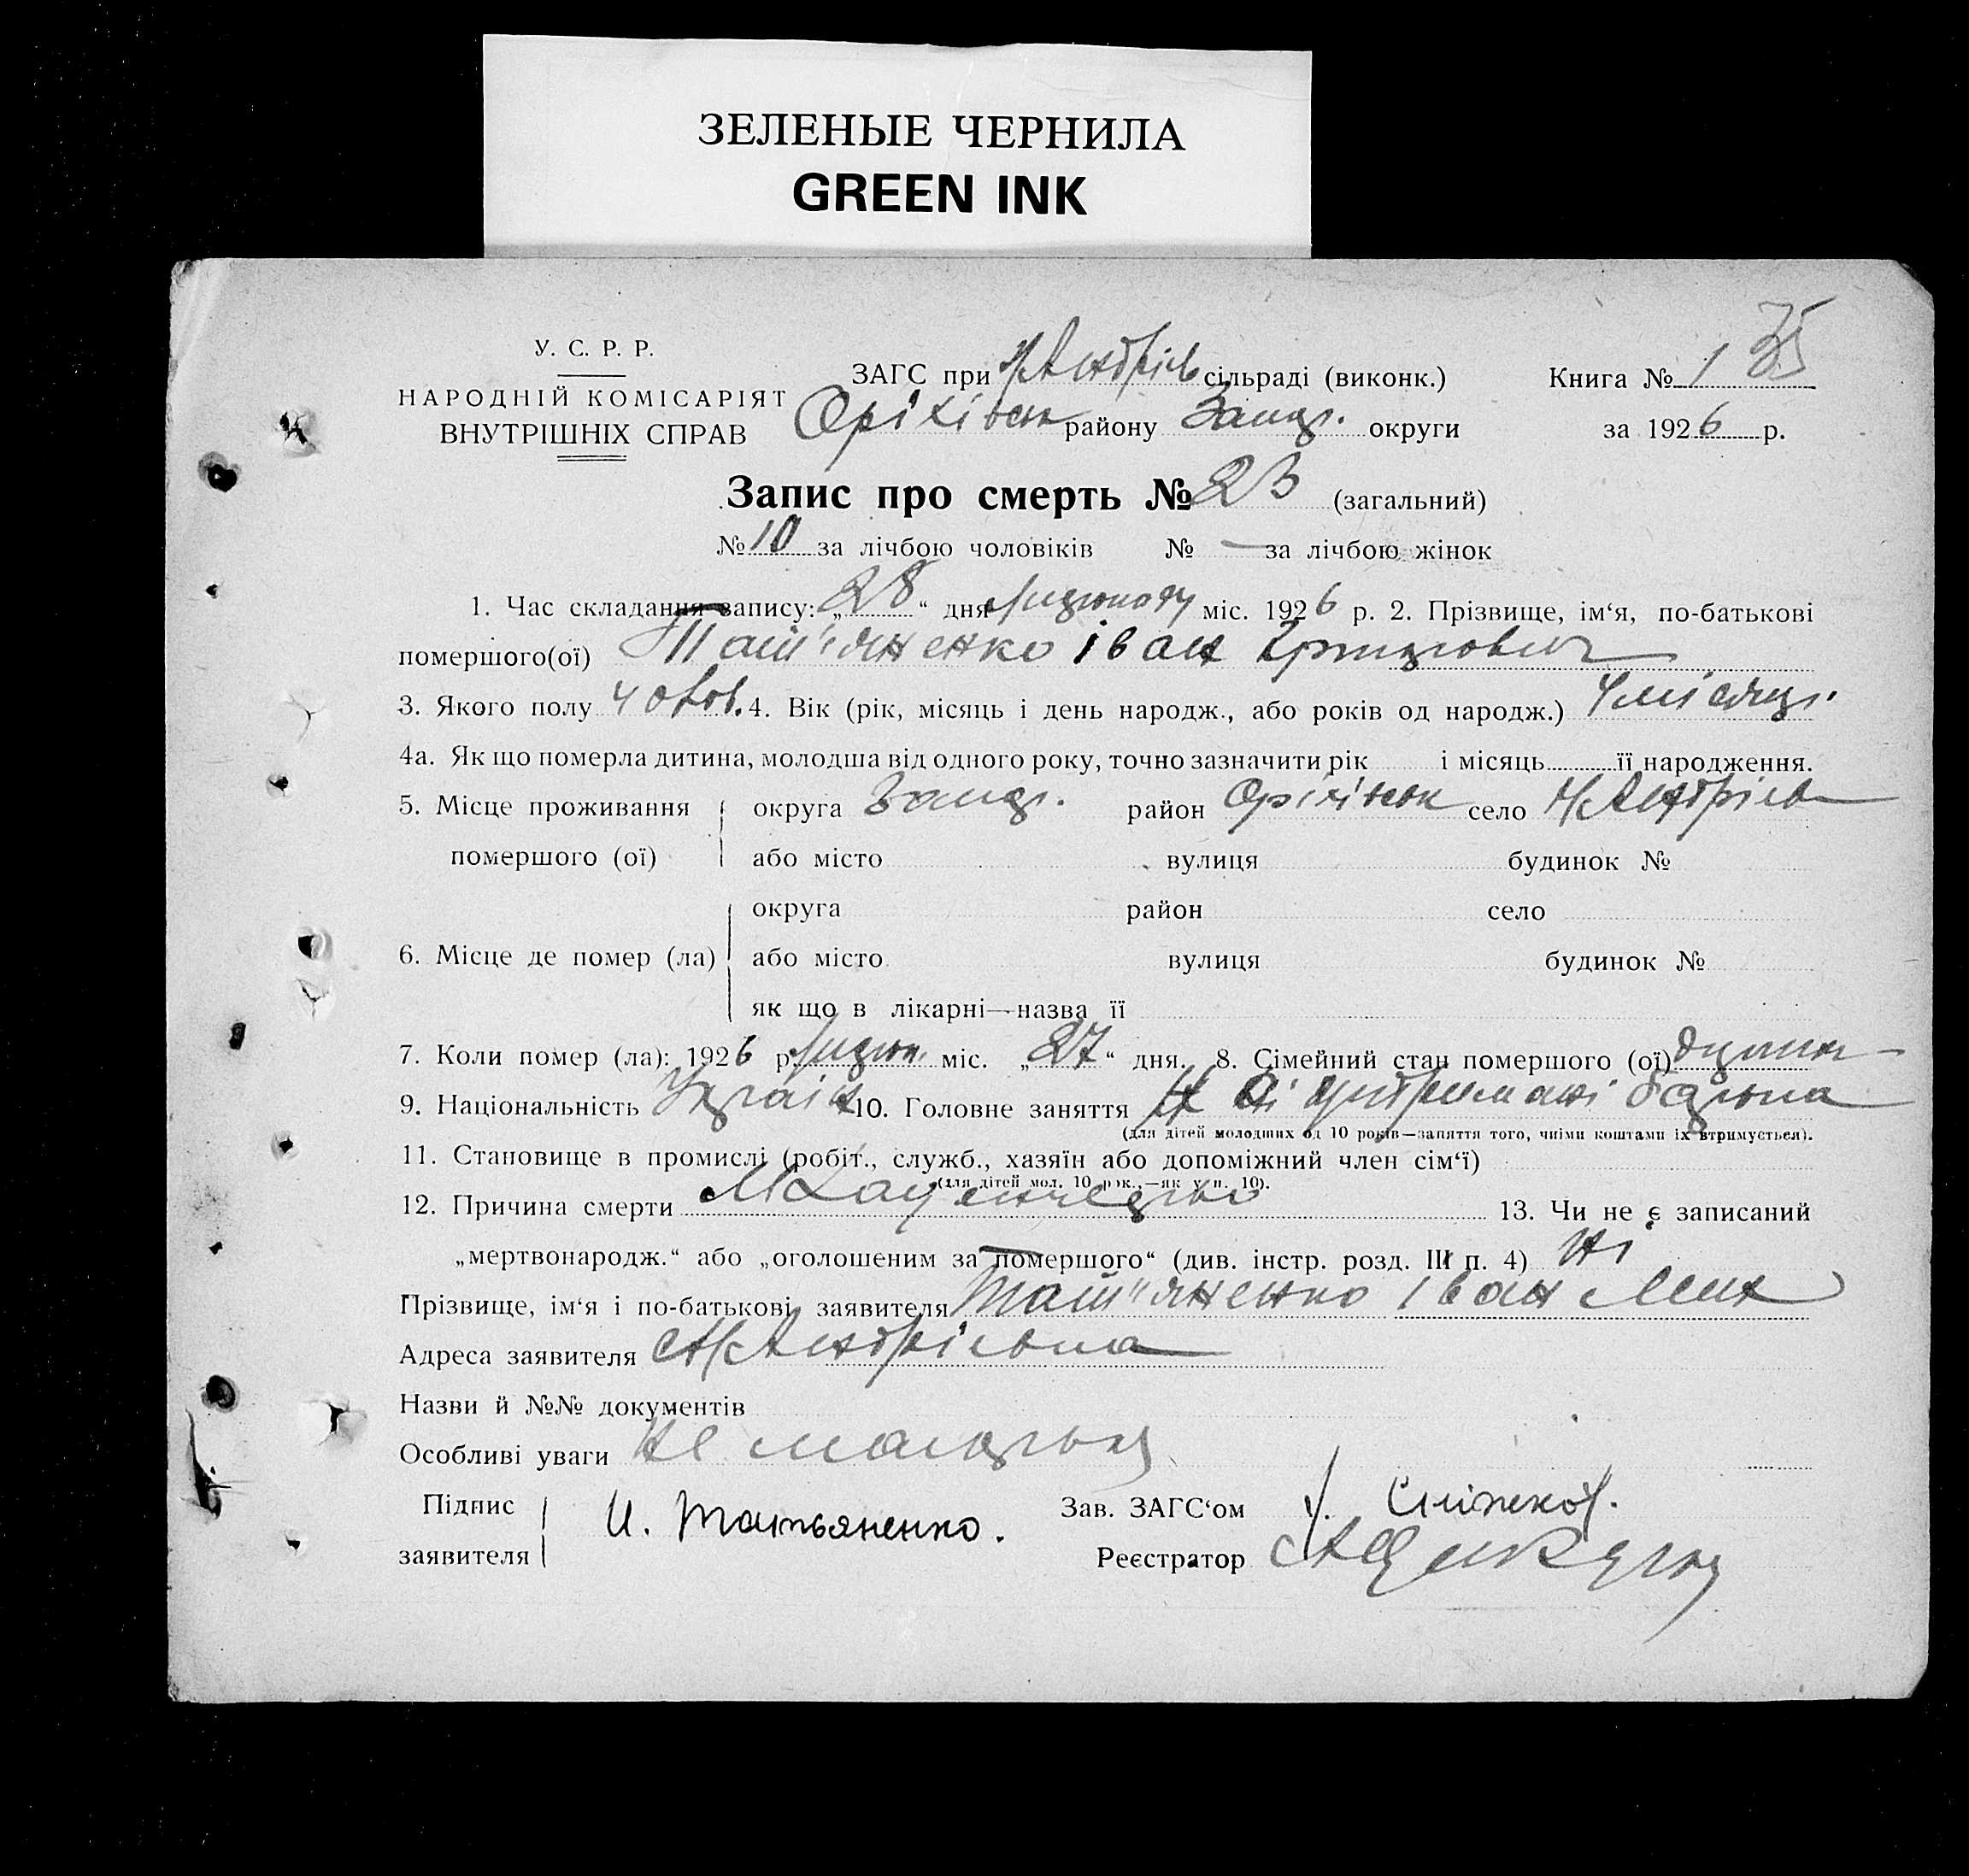 ЗЕЛЕНЫЕ ЧЕРНИЛА
GREEN INK
У. С. Р. Р.
НАРОДНІЙ КОМІСАРІЯТ
ВНУТРІШНІХ СПРАВ
ЗАГС при Н/Андріїв сільраді (виконк.)
Оріхівськ району Запор. округи
Книга № 1 35
за 1926 р.
Запис про смерть № 23 (загальний)
№ 10 за лічбою чоловіків № — за лічбою жінок
1. Час складання запису: „28“ дня міс. 1926 р. 2. Прізвище, ім‘я, по-батькові
помершого(ої) Тат'яненко Іван
3. Якого полу чолов. 4. Вік (рік, місяць і день народж., або років од народж.) місяці
4а. Як що померла дитина, молодша від одного року, точно зазначити рік і місяць її народження.
5. Місце проживання округа Запор. район Оріхівськ село Н/Андріїв
помершого (ої) або місто вулиця будинок №
округа район село
6. Місце де помер (ла) або місто вулиця будинок №
як що в лікарні—назва її
7. Коли помер (ла): 1926 р. міс. „27“ дня. 8. Сімейний стан помершого (ої)
9. Національність Україн 10. Головне заняття На утриманні батька
(для дітей молодших од 10 років—заняття того, чиїми коштами їх втримується).
11. Становище в промислі (робіт., служб., хазяїн або допоміжний член сім‘ї)
(для дітей мол. 10 рок.,—як у п. 10).
12. Причина смерти 13. Чи не є записаний
„мертвонародж.“ або „оголошеним за помершого“ (див. інстр. розд. III п. 4) Ні
Прізвище, ім‘я і по-батькові заявителя Тат'яненко Іван Мих
Адреса заявителя Н/Андріївка
Назви й №№ документів
Особливі уваги Не
Підпис
заявителя И. Татьяненко.
Зав. ЗАГС‘ом
Реєстратор